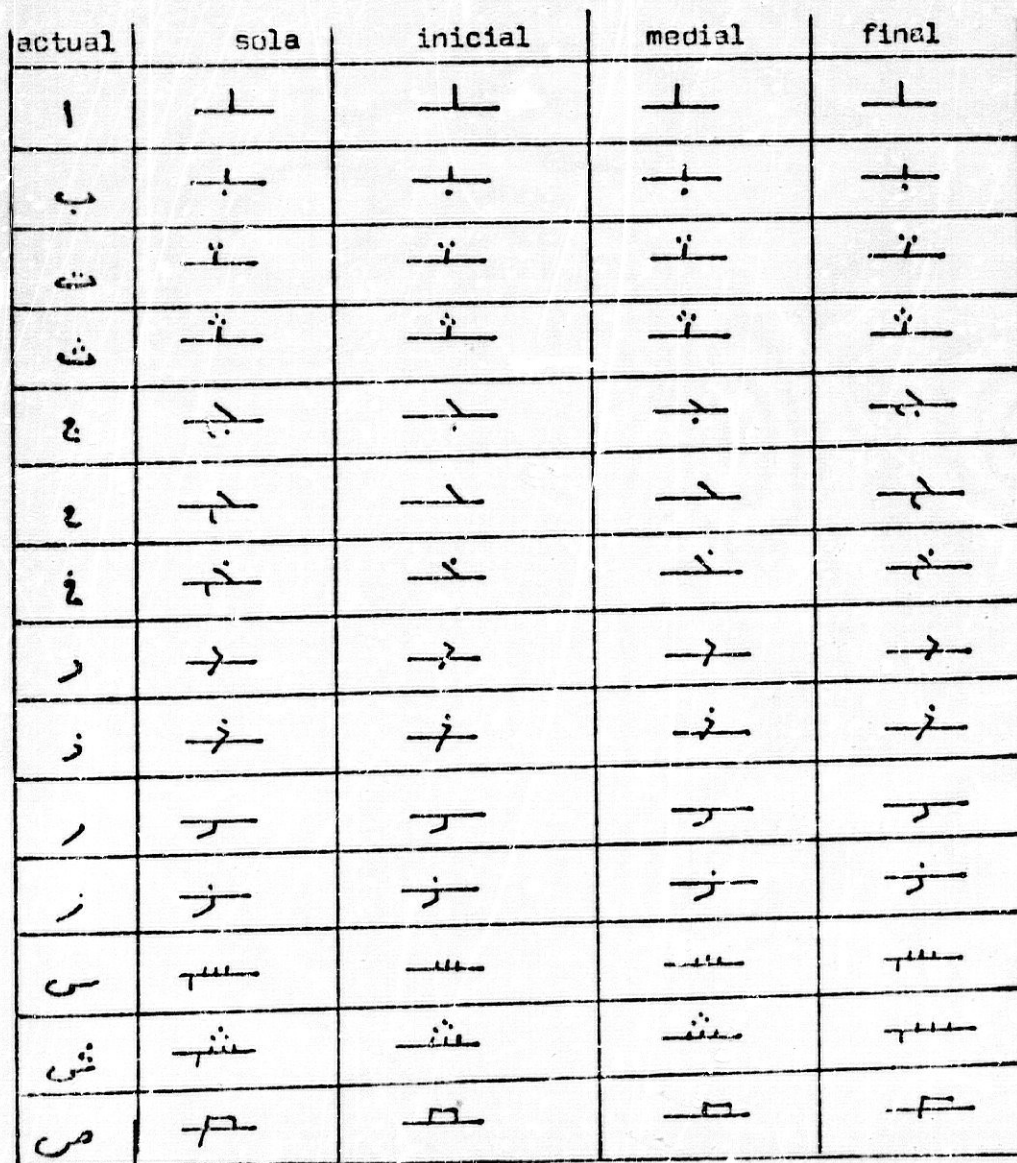 actual sola inicial medial final
ا
ب
ت
ث
ج
ح
خ
د
ذ
ر
ز
س
ش
ص